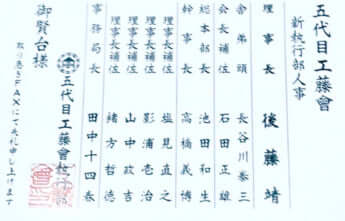 五代目工藤會
新執行部人事
理事長 後藤靖
舎弟頭 長谷川泰三
会長補佐 石田正雄
総本部長 池田和生
幹事長 高橋義博
理事長補佐 塩見直之
理事長補佐 影浦壱治
理事長補佐 山中政吉
理事長補佐 緒方哲徳
事務局長 田中十四春
五代目工藤會
御賢台様
取り急ぎFAXにて失礼申し上げます